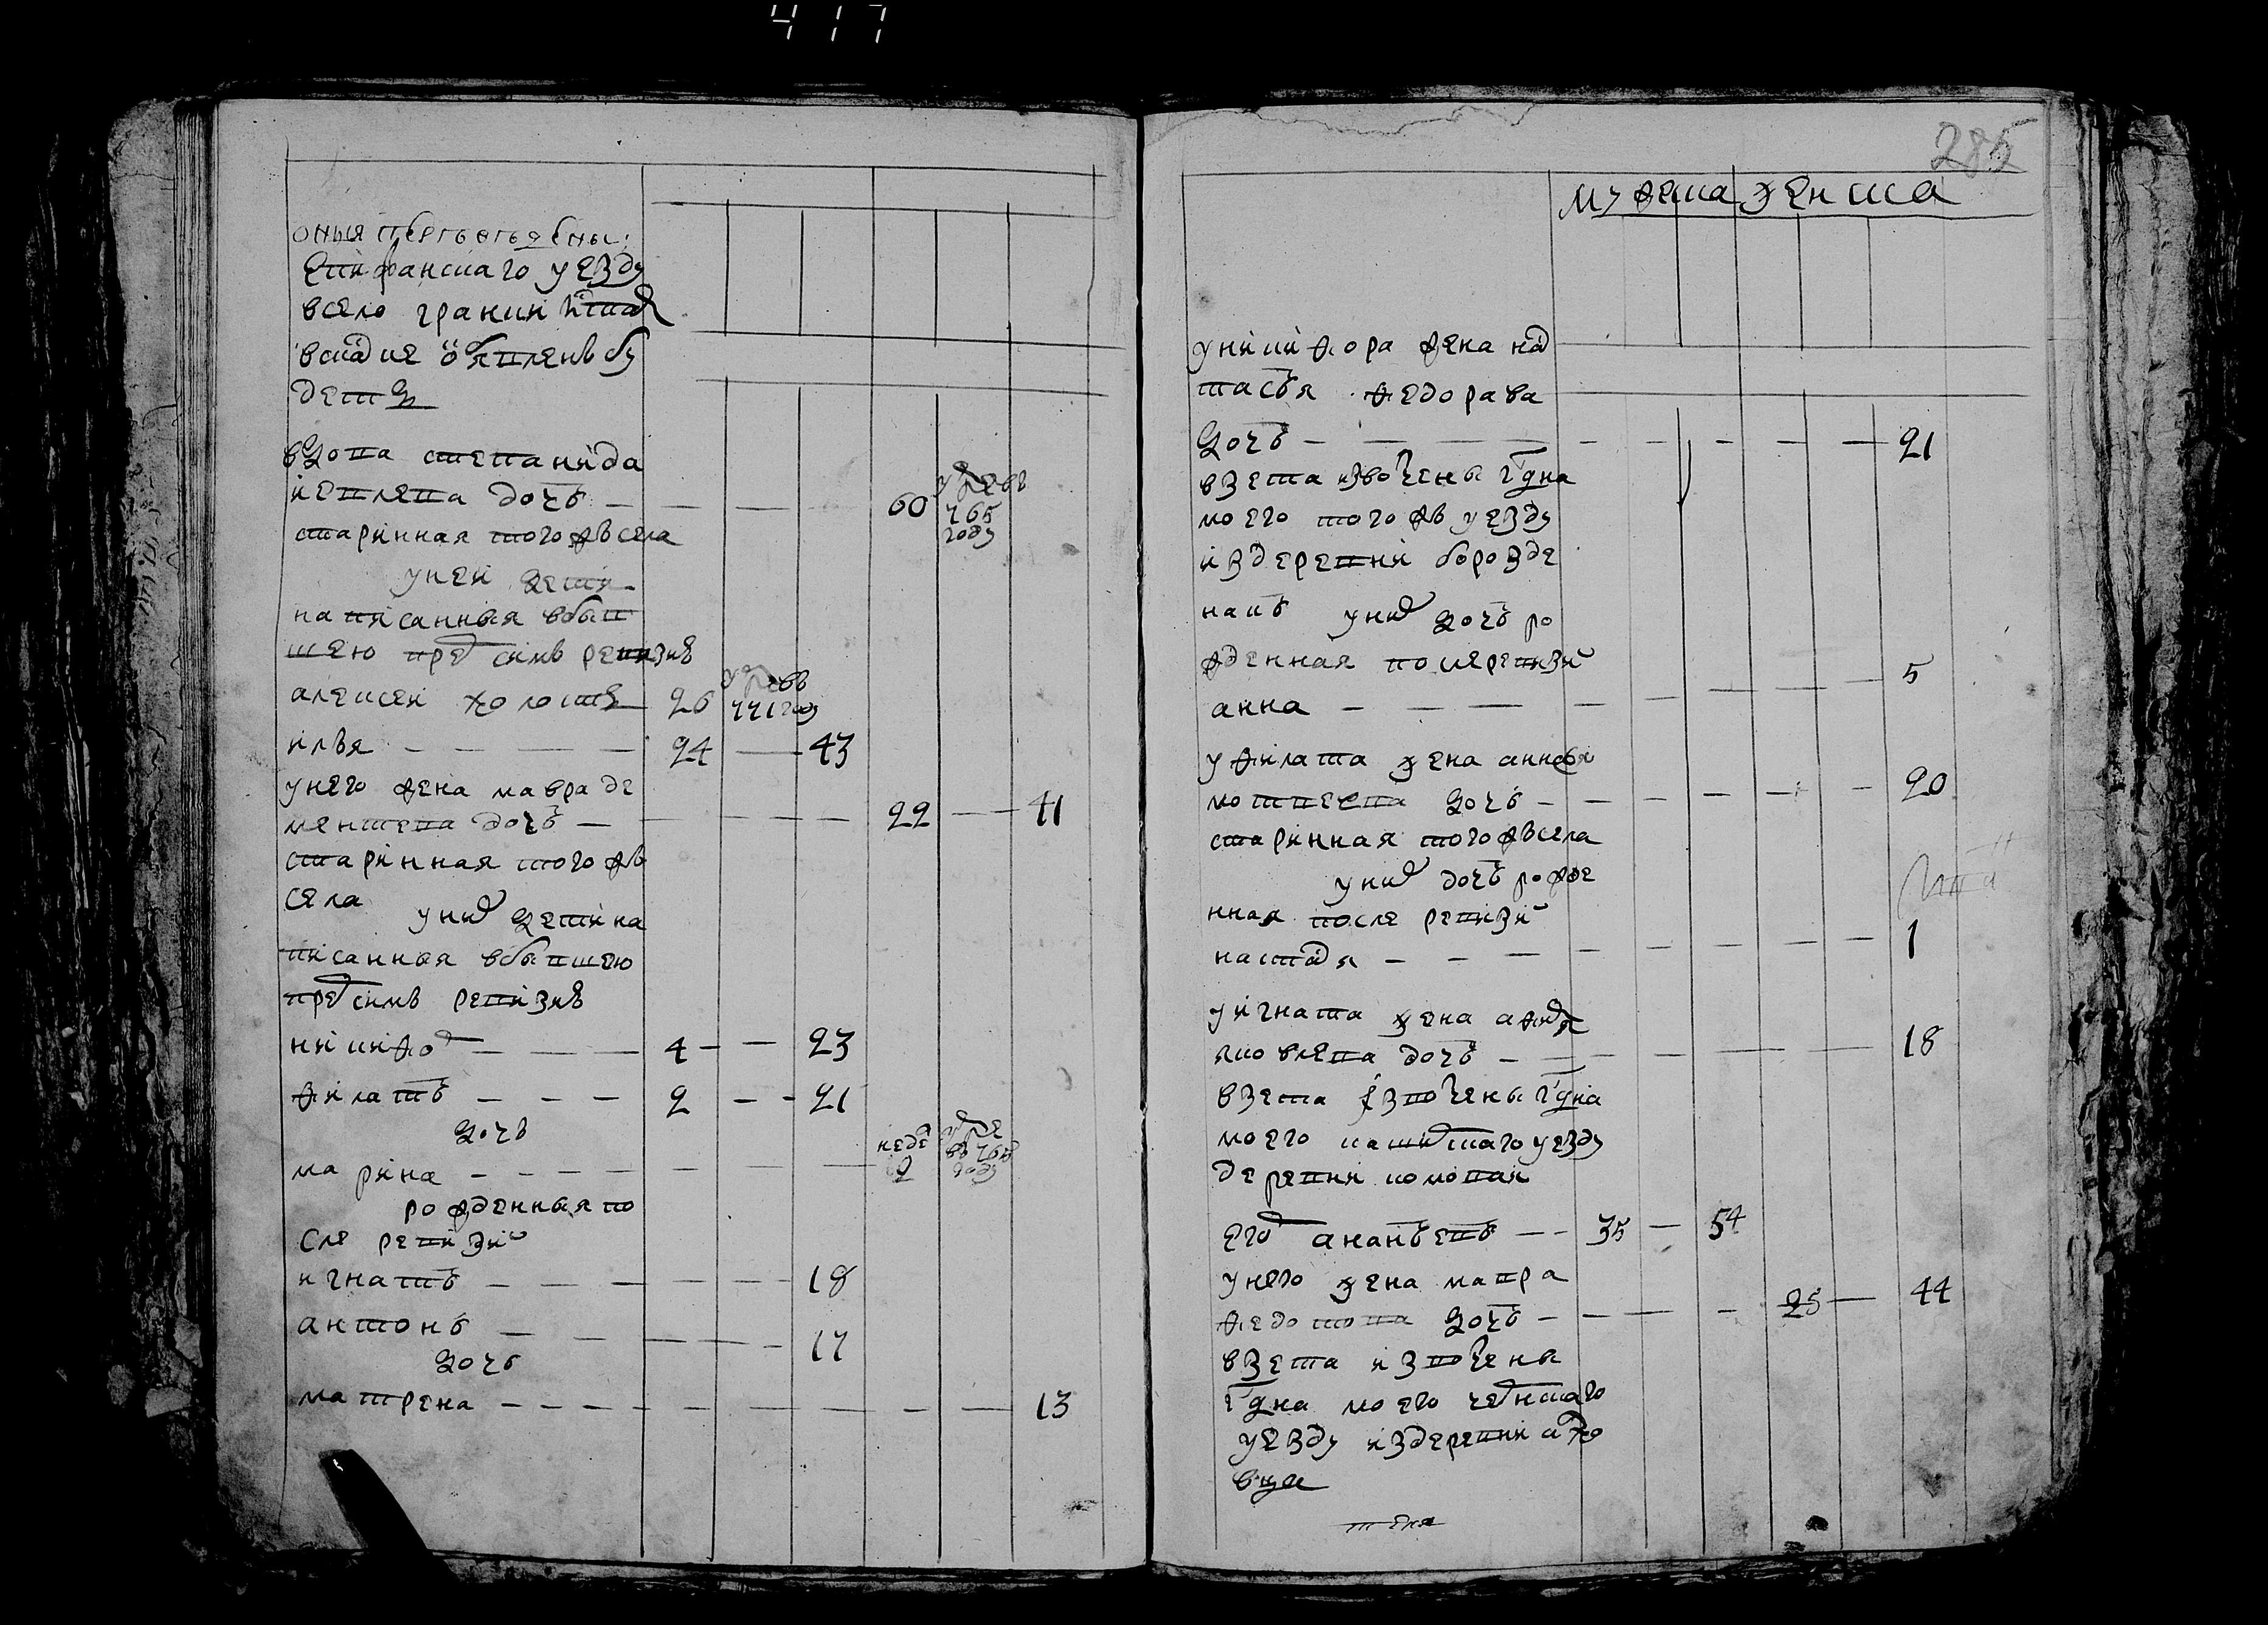 417
оныя переведены
Епифанскаго уезду
всело гранки и тамъ
вскаске объявлены бу
детъ
вдова степанида
иевлева дочь — 60 умре въ 765 году
старинная тогожъ села
у ней дети
написанныя вбыв
шею пред симъ ревизию
алексей холостъ 26 умре въ 771 году
илья — 24 — 43
у него жена мавра де
ментева дочь — 22 — 41
старинная тогожъ
села
у них дети на
писанныя вбывшею
пред симъ ревизию
никифор — 4 — 23
филатъ — 2 — 21
дочь
марина — неде 2 умре въ году
рожденныя по
сле ревизии
игнатъ — 18
антонъ — 17
дочь
матрена — 13
285
мужеска женска
у никифора жена нас
тасья федорава
дочь — 21
взета извотчены гдна
моего тогожъ уезду
из деревни борозде
накъ
у них дочь ро
жденная после ревизии
анна — 5
у филата жена
дочь — 20
старинная тогожъ села
у них дочь рожде
нная после ревизии
настася — 1
у игната жена
яковлева дочь — 18
взета из вотчены гдна
моего каширскаго уезду
деревни
егор ананьевъ — 35 — 54
у него жена мавра
федотова дочь — 25 — 44
взета из вотчены
гдна моего чернскаго
уезду из деревни